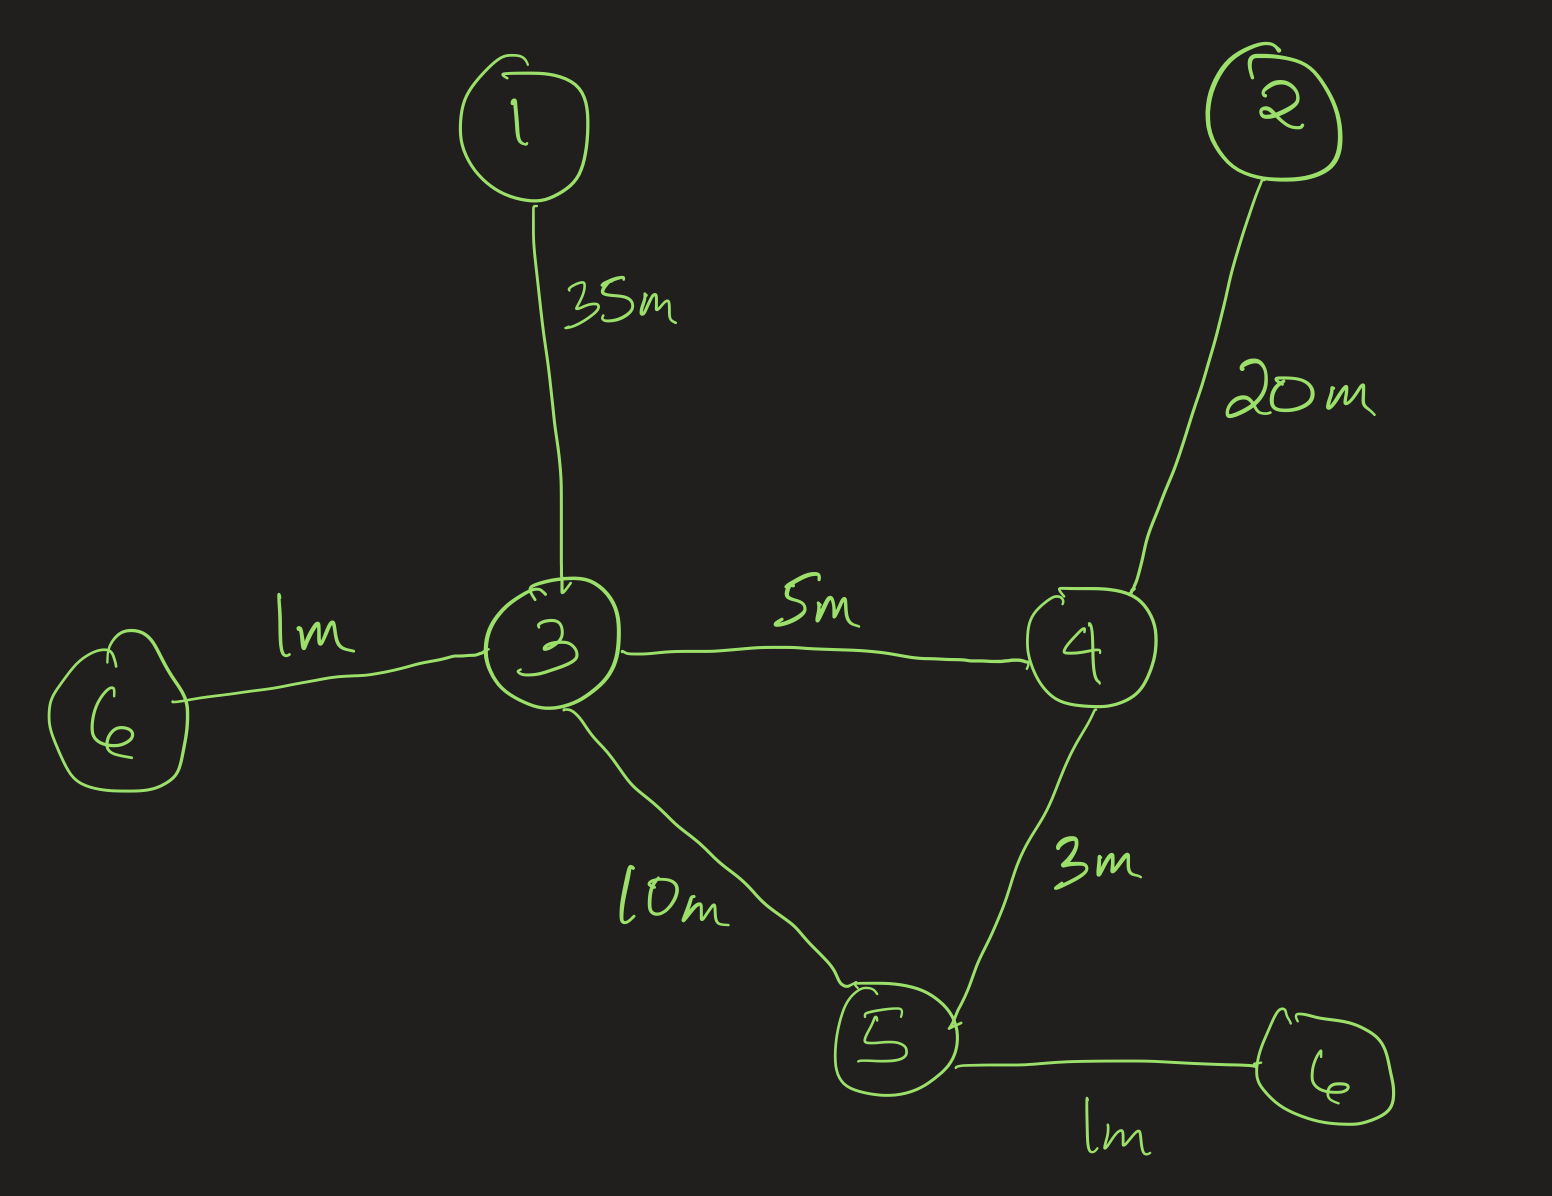 1
2
35m
20m
1m
5m
3
4
6
10m
3m
5
6
1m